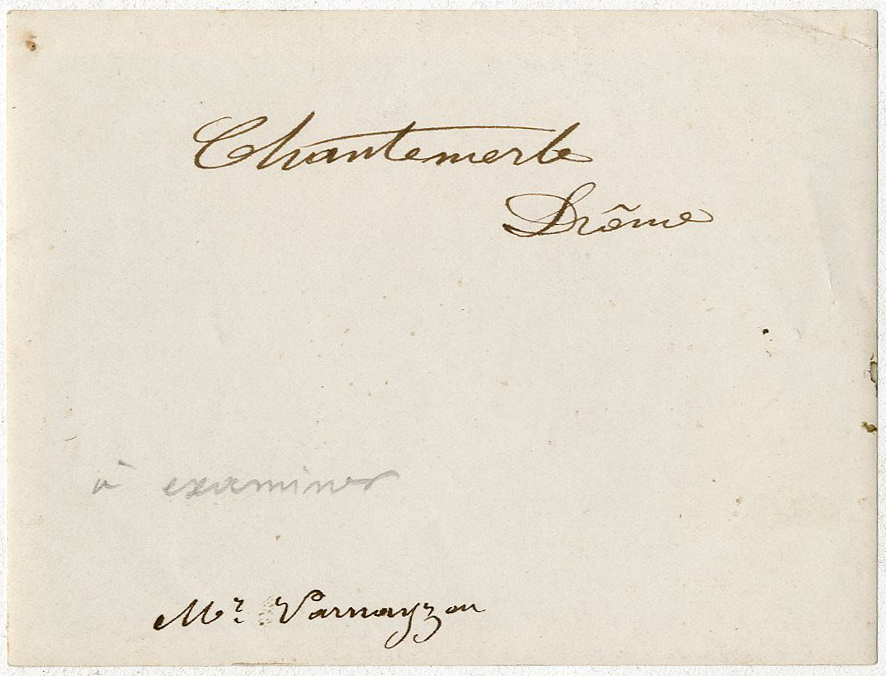 Chantemerle
Drôme
à examiner
Mr. Varnayzon